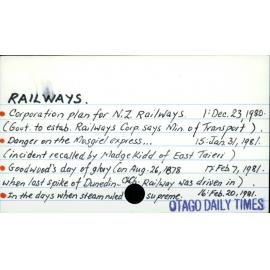 RAILWAYS.
Corporation plan for N.Z Railways 1: Dec. 23, 1980.
(Govt. to estab. Railways Corp. says Min. of Transport).
Danger on the Mosgiel express... 15: Jan. 31, 1981.
(incident recalled by Madge Kidd of East Taieri)
Goodwood's day of glory (on Aug. 26, 1878 17: Feb 7, 1981.
when last spike of Dunedin- ChCh Railway was driven in).
In the days when steam ruled supreme. 16: Feb. 20, 1981.
OTAGO DAILY TIMES